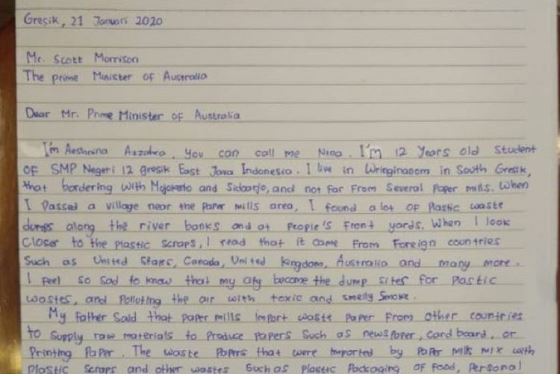 Gresik, 21 Januari 2020
Mr. Scott Morrison
The prime Minister of Australia
Dear Mr. Prime Minister of Australia
I'm Aeshnina Azzahra, You can call me Nina. I'm 12 Years old student
OF SMP Negeri 12 gresik East Java Indonesia. I live in Wringinanom in South Gresik,
that bordering with Mojokerto and Sidoarjo, and not far From Several Paper mills. When
I Passed a village near the Paper mills area, I found a lot OF Plastic waste
dumps along the river banks and at People's Front yards. When I look
Closer to the plastic Scraps, I read that it came From Foreign countries
Such as United States, Canada, United Kingdom, Australia and many more.
I Feel so Sad to know that my city become the dump sites for Plastic
wastes, and Polluting the air with toxic and smelly Smoke.
My Father Said that paper mills Import waste Paper From other countries
to Supply raw materials to Produce Papers Such as newspaper, Card board, or
Printing Paper. The waste Papers that were imported by Paper mills mix with
Plastic Scraps and other wastes Such as Plastic Packaging of Food, Personal